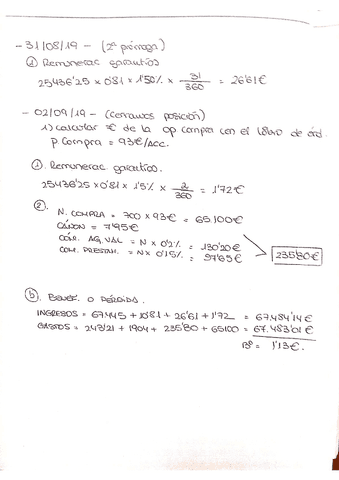 - 31/08/19 - (2ª prórroga)
① Remunerac. garantías
25436'25 x 0'81 x 1'50% x 31/360 = 26'61€
- 02/09/19 - (Cerramos posición)
1) calcular € de la op compra con el libro de órd.
P. Compra = 93€/Acc.
①. Remunerac. garantías.
25436'25 x 0'81 x 1'5% x 2/360 = 1'72€
②.
N. COMPRA = 700 x 93€ = 65.100€
CÁNON = 7'95€
COM. AG. VAL = N x 0'2% = 130'20€
COM. PRESTAM. = N x 0'15% = 97'65€
235'80€
ⓑ. BENEF. O PÉRDIDAS.
INGRESOS = 67.445 + 10'81 + 26'61 + 1'72 = 67.484'14€
GASTOS = 243'21 + 1904 + 235'80 + 65100 = 67.483'01€
Bº = 1'13€.